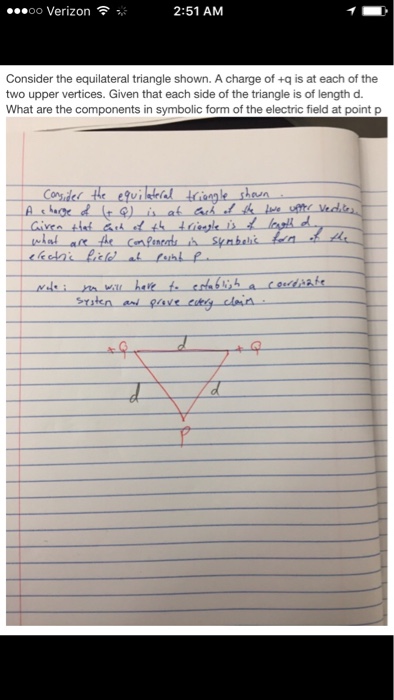 Verizon 2:51 AM
Consider the equilateral triangle shown. A charge of +q is at each of the
two upper vertices. Given that each side of the triangle is of length d.
What are the components in symbolic form of the electric field at point p
Consider the equilateral triangle shown.
A charge of (+ Q) is at each of the two upper vertices.
Given that each of the triangle is of length d.
what are the components in symbolic form of the
electric field at point P.
Note: you will have to establish a coordinate
system and prove every claim.
+Q d +Q
d d
P